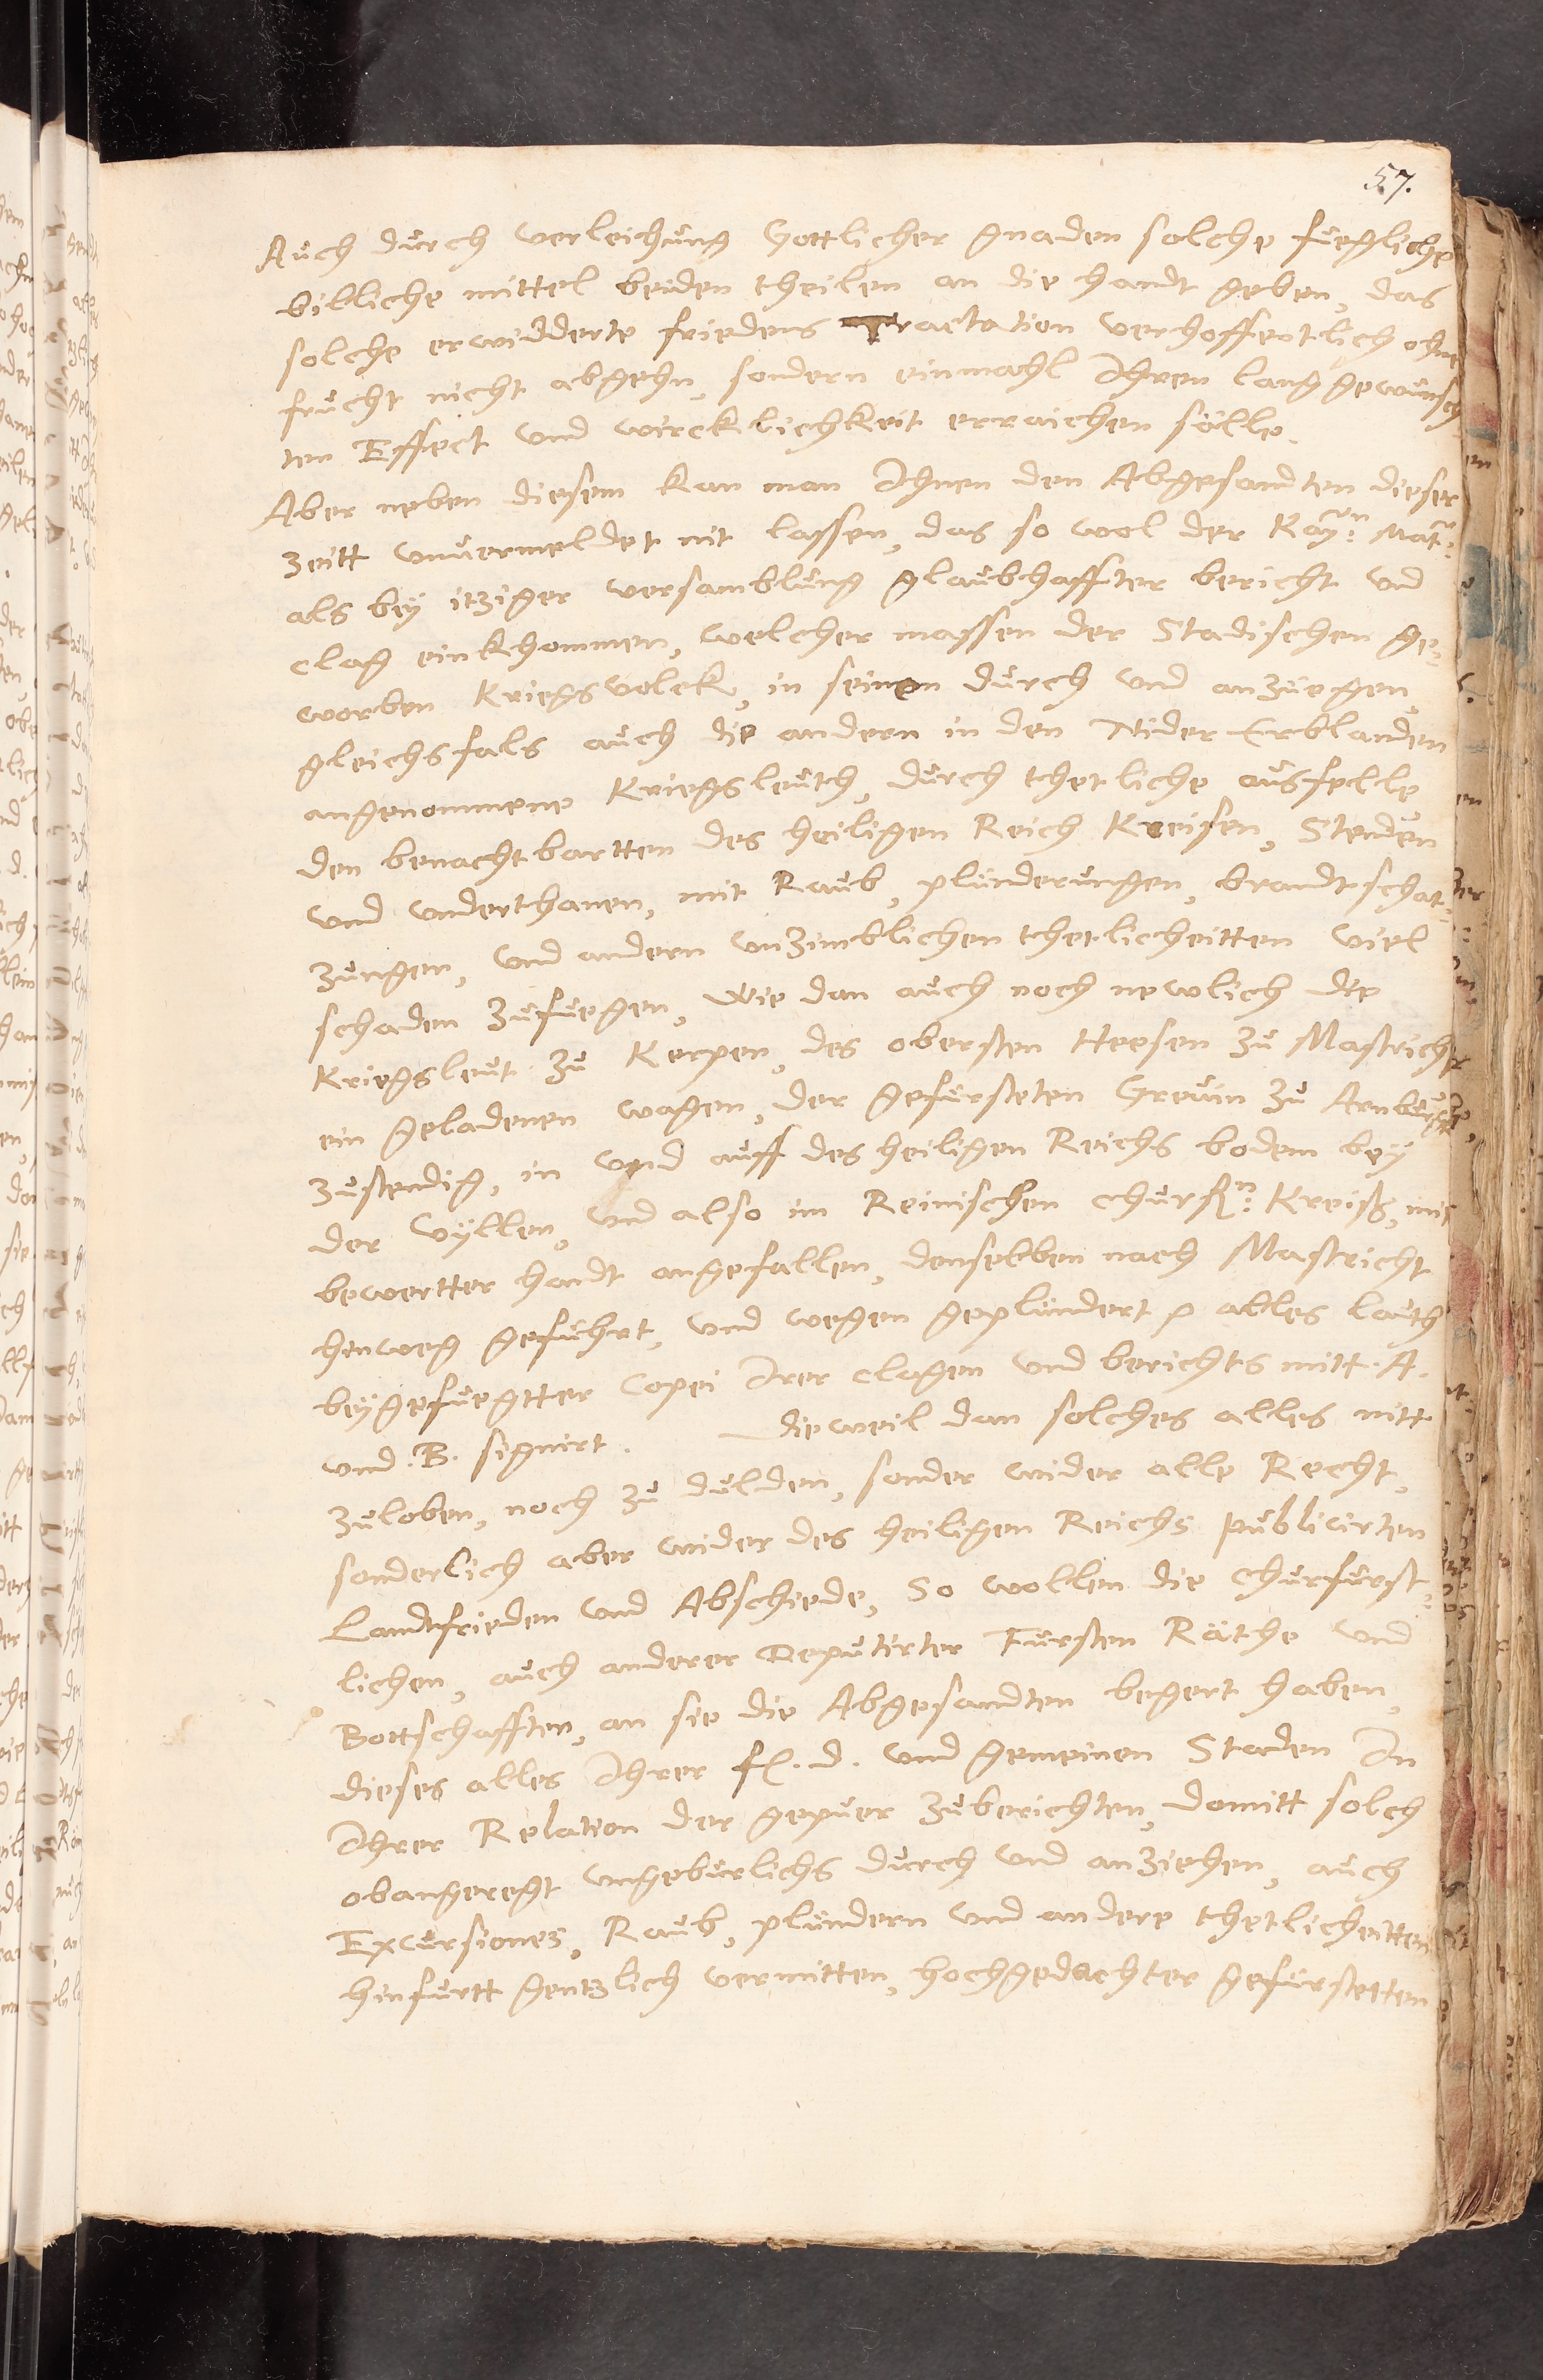 57.
Auch durch verleichung Gottlicher gnaden solche fuegliche
billiche mittel beiden theilen an die handt geben, das
solche erwidderte friedens Tractation verhoffentlich ohne
frucht nicht abgehn, sondern einmahl Ihren lang gewunsch
ten Effect und wircklichkeit erraichen sölle.
Aber neben diesem kan man Ihnen den Abgesandten dieser
zeitt unvermeldet nit lassen, das so wol der Kayn: Matt:
als bey itziger versamblung glaubhaffter bericht und
clag einkhommen, welcher massen der Stadischen ge-
worben Kriegsvolck, in seinen durch und anzuegen,
gleichsfals auch die andern in den Nider Erblanden
angenommene Kriegsleuth, durch thetliche ausfelle
den benachtbartten des heiligen Reich Kreisen, Stenden
und underthanen, mit Raub, plunderungen, brandtschat-
zungen, und andern unzimblichen thetlicheitten viel
schaden zufuegen, Wie dan auch noch newlich die
Kriegsleut zu Kerpen, des obersten Heesen zu Mastricht
ein geladenen wagen, der gefursteten Grevin zu Arnburgh,
zustendig, in und auff des heiligen Reichs bodem bey
der Vyllen, und also im Reinischen churfn: Kreiß, mit
bewertter handt angefallen, denselben nach Mastricht
hinweg gefuhrt, und wegen geplundert p alles lauth
beygefuegtter Copei Irer clagen und berichts mitt. A.
und. B. signirt. Dieweil dan solches alles nitt
zuloben, noch zu dulden, sonder wider alle Recht,
sonderlich aber wider des heiligen Reichs publicirten
Landtfrieden und Abschiede, So wollen die churfurst-
lichen, auch anderer Deputirter Fursten Räthe und
Bottschafften, an sie die Abgesandten begert haben,
dieses alles Ihrer f. d. und gemeinen Staden In
Ihrer Relation der gepuer zuberichten, domitt solch
obangeregt ungeburlichs durch und anziehen, auch
Excursiones, Raub, plundern und andere thetlicheitten
hinfurtt gentzlich vermitten, hochgedachter gefurstetten